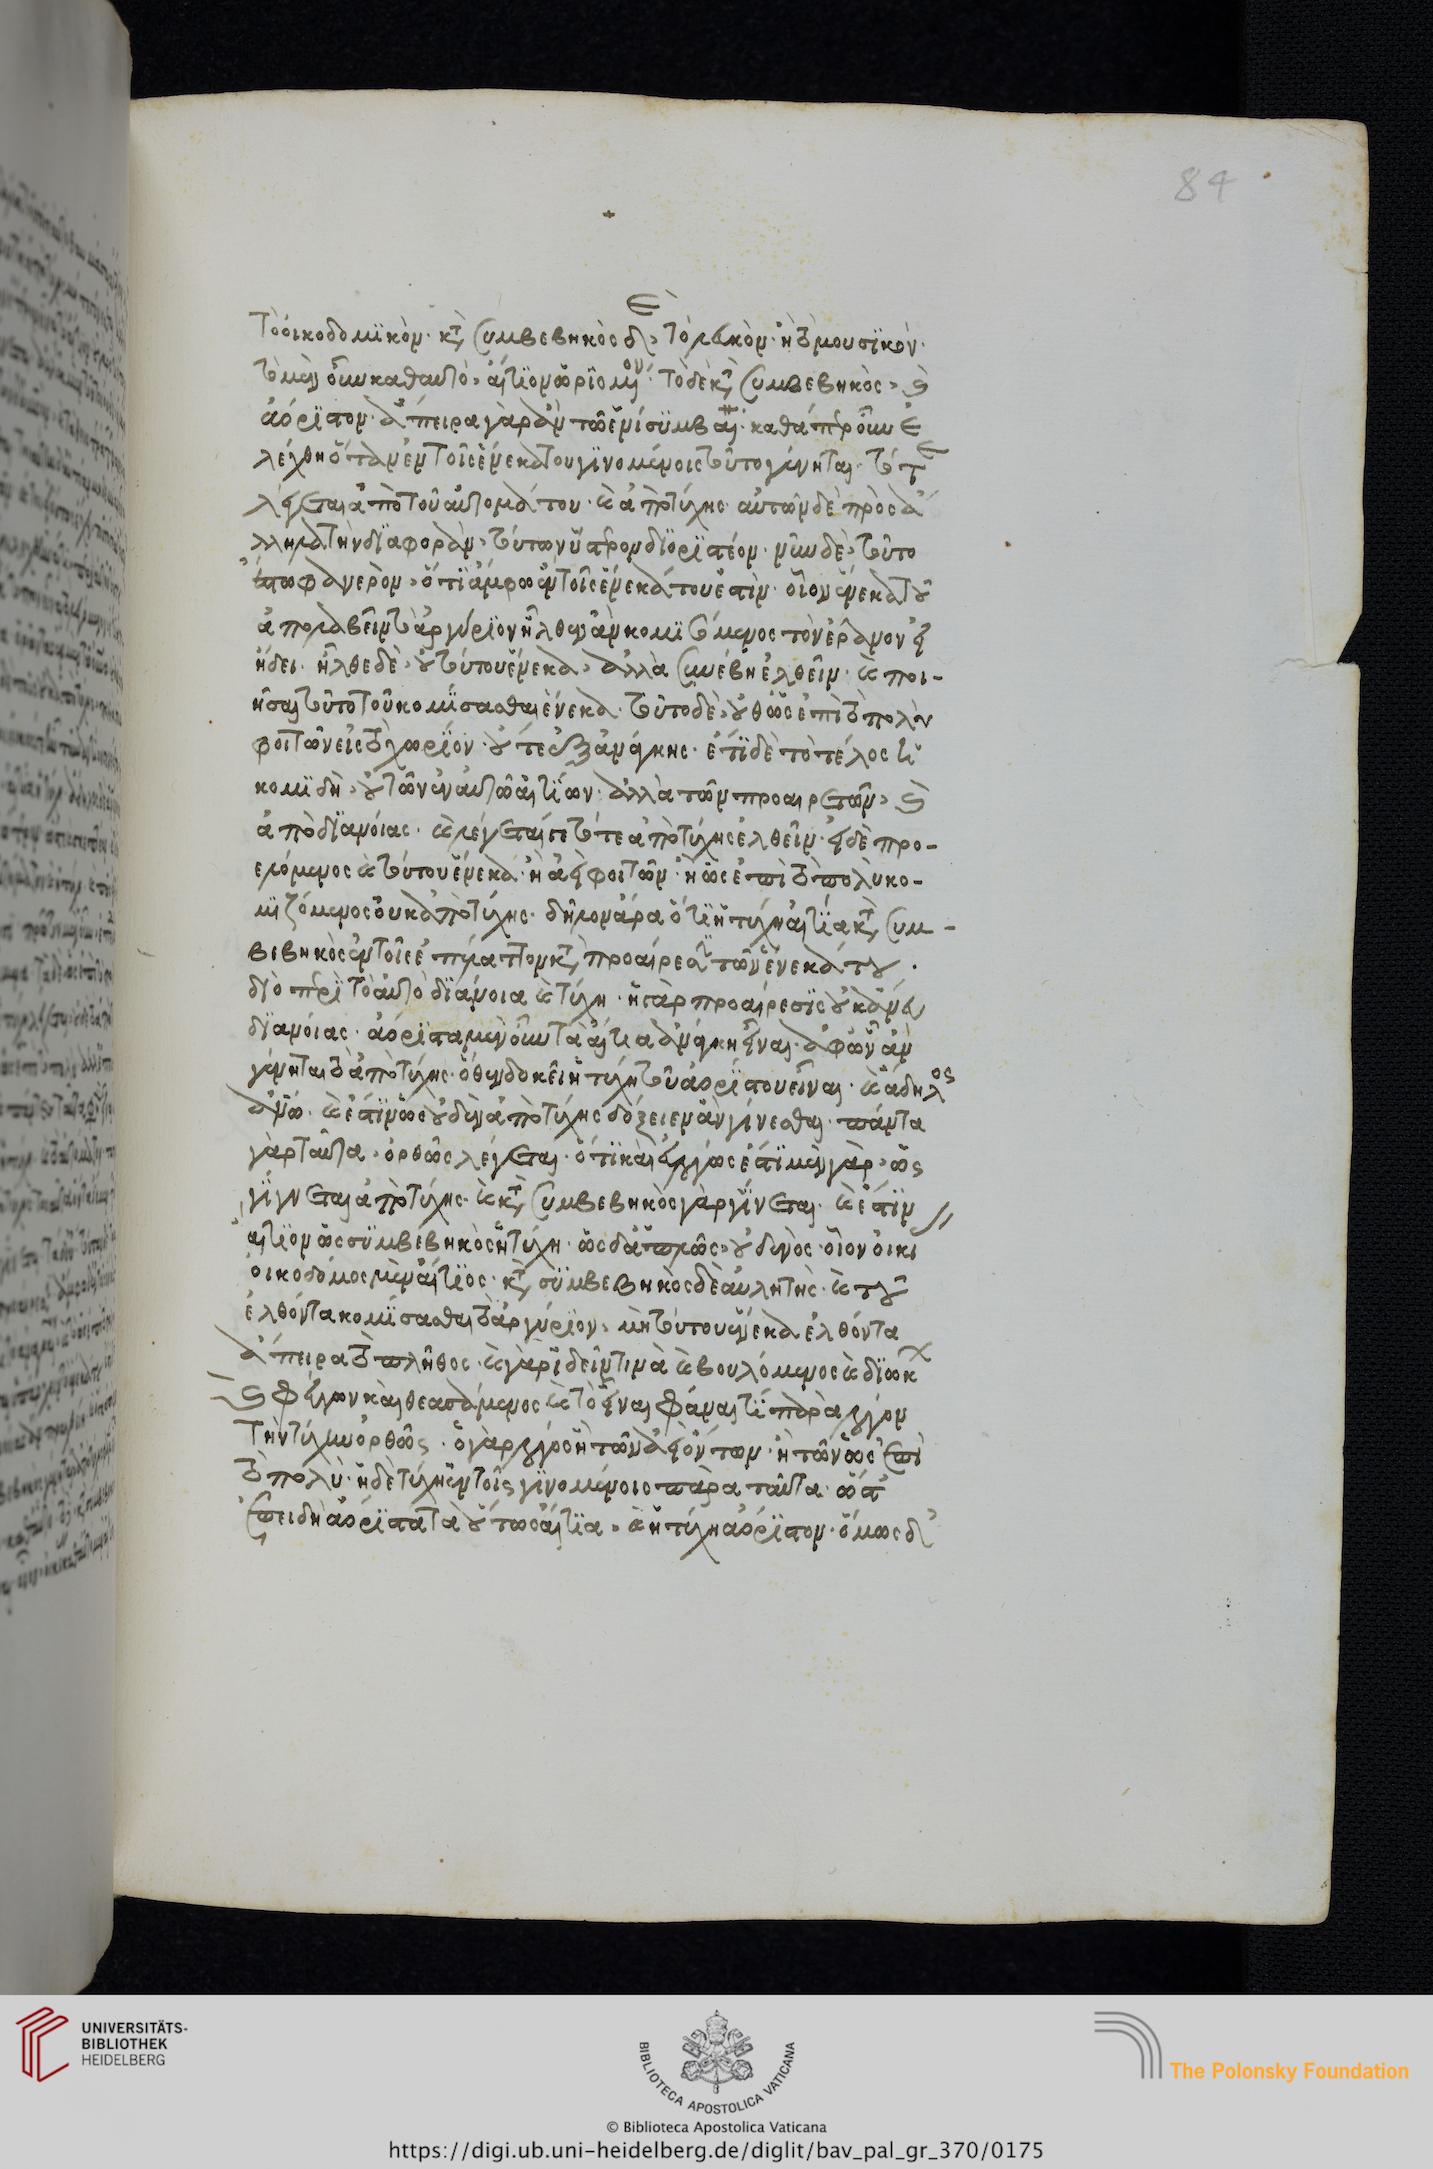 ἐ
τὸ οἰκοδομϊκὸν· κατὰ συμβεβηκὸς δὲ, τὸ λευκὸν· ἢ τὸ μουσϊκόν·
τὸ μὲν οὖν καθαυτὸ, αἴτιον ὡρισμένον· τὸ δὲ κατὰ συμβεβηκὸς, καὶ
ἀόριστον· ἄπειρα γὰρ ἂν τῶ ἑνὶ συμβαίη· καθάπερ οὖν ἐ
λέχθη ὅταν ἐν τοῖς ἕνεκά του γινομένοις τοῦτο γένηται· τότε
λέγεται ἀπὸ τοῦ αὐτομάτου· καὶ ἀπὸ τύχης· αὐτῶν δὲ πρὸς ἄ
λληλα τὴν διαφορὰν, τούτων ὕστερον διοριστέον· νῦν δὲ, τοῦτο
ἔστω φανερὸν, ὅτι ἄμφω ἐν τοῖς ἕνεκά του ἐστὶν· οἷον ἕνεκα τοῦ
ἀπολαβεῖν τὸ ἀργύριον ἦλθεν ἂν κομιζόμενος τὸν ἔρανον εἰ
ἤδει· ἦλθε δὲ, οὐ τούτου ἕνεκα, ἀλλὰ συνέβη ἐλθεῖν· καὶ ποι-
ῆσαι τοῦτο τοῦ κομίσασθαι ἕνεκα· τοῦτο δὲ, οὔθ' ὡς ἐπὶ τὸ πολὺ
φοιτῶν εἰς τὸ χωρίον· οὔτε ἐξ ἀνάγκης· ἔτι δὲ τὸ τέλος ἡ
κομιδὴ, οὐ τῶν ἐν αὐτῶ αἰτίων· ἀλλὰ τῶν προαιρετῶν, καὶ
ἀπὸ διανοίας· καὶ λέγεταί γε τότε ἀπὸ τύχης ἐλθεῖν· εἰ δὲ προ-
ελόμενος καὶ τούτου ἕνεκα· ἢ ἀεὶ φοιτῶν· ἢ ὡς ἐπὶ τὸ πολὺ κο-
μιζόμενος οὐκ ἀπὸ τύχης· δῆλον ἄρα ὅτι ἡ τύχη αἰτία κατὰ συμ-
βεβηκὸς ἐν τοῖς ἐπ' ἔλαττον κατὰ προαίρεσιν τῶν ἕνεκά του·
διὸ περὶ τὸ αὐτὸ διάνοια καὶ τύχη· ἡ γὰρ προαίρεσις οὐκ ἄνευ
διανοίας· ἀόριστα μὲν οὖν τὰ αἴτια ἀνάγκη εἶναι· ἀφ' ὧν ἂν
γένηται τὸ ἀπὸ τύχης· ὅθεν δοκεῖ ἡ τύχη τοῦ ἀορίστου εἶναι· καὶ ἄδηλος
ἀν̅ω̅· καὶ ἔστιν ὡς οὐδὲν ἀπὸ τύχης δόξειεν ἂν γίνεσθαι· πάντα
γὰρ ταῦτα, ὀρθῶς λέγεται· ὅτι καὶ εὐλόγως ἔστι μὲν γὰρ, ὡς
γίγνεται ἀπὸ τύχης· καὶ κατὰ συμβεβηκὸς γὰρ γίνεται· καὶ ἔστιν
αἴτιον ὡς συμβεβηκὸς ἡ τύχη· ὡς δ' ἁπλῶς, οὐδενὸς· οἷον οἰκι
οἰκοδόμος μὲν αἴτιος· κατὰ συμβεβηκὸς δὲ αὐλητὴς· καὶ τοῦ
ἐλθόντα κομίσασθαι τὸ ἀργύριον, μὴ τούτου ἕνεκα ἐλθόντα
ἄπειρα τὸ πλῆθος· καὶ γὰρ ἰδεῖν τινὰ καὶ βουλόμενος καὶ διώκων
καὶ φεύγων καὶ θεασάμενος καὶ τὸ εἶναι φάναι τὶ παράλογον
τὴν τύχην ὀρθῶς· ὁ γὰρ λόγος ἢ τῶν ἀεὶ ὄντων· ἢ τῶν ὡς ἐπὶ
τὸ πολὺ· ἡ δὲ τύχη ἐν τοῖς γινομένοις παρὰ ταῦτα· ὥστ'
ἐπειδὴ ἀόριστα τὰ οὕτως αἴτια, καὶ ἡ τύχη ἀόριστον· ὅμως δ'
84
UNIVERSITÄTS-
BIBLIOTHEK
HEIDELBERG
BIBLIOTECA APOSTOLICA VATICANA
The Polonsky Foundation
© Biblioteca Apostolica Vaticana
https://digi.ub.uni-heidelberg.de/diglit/bav_pal_gr_370/0175